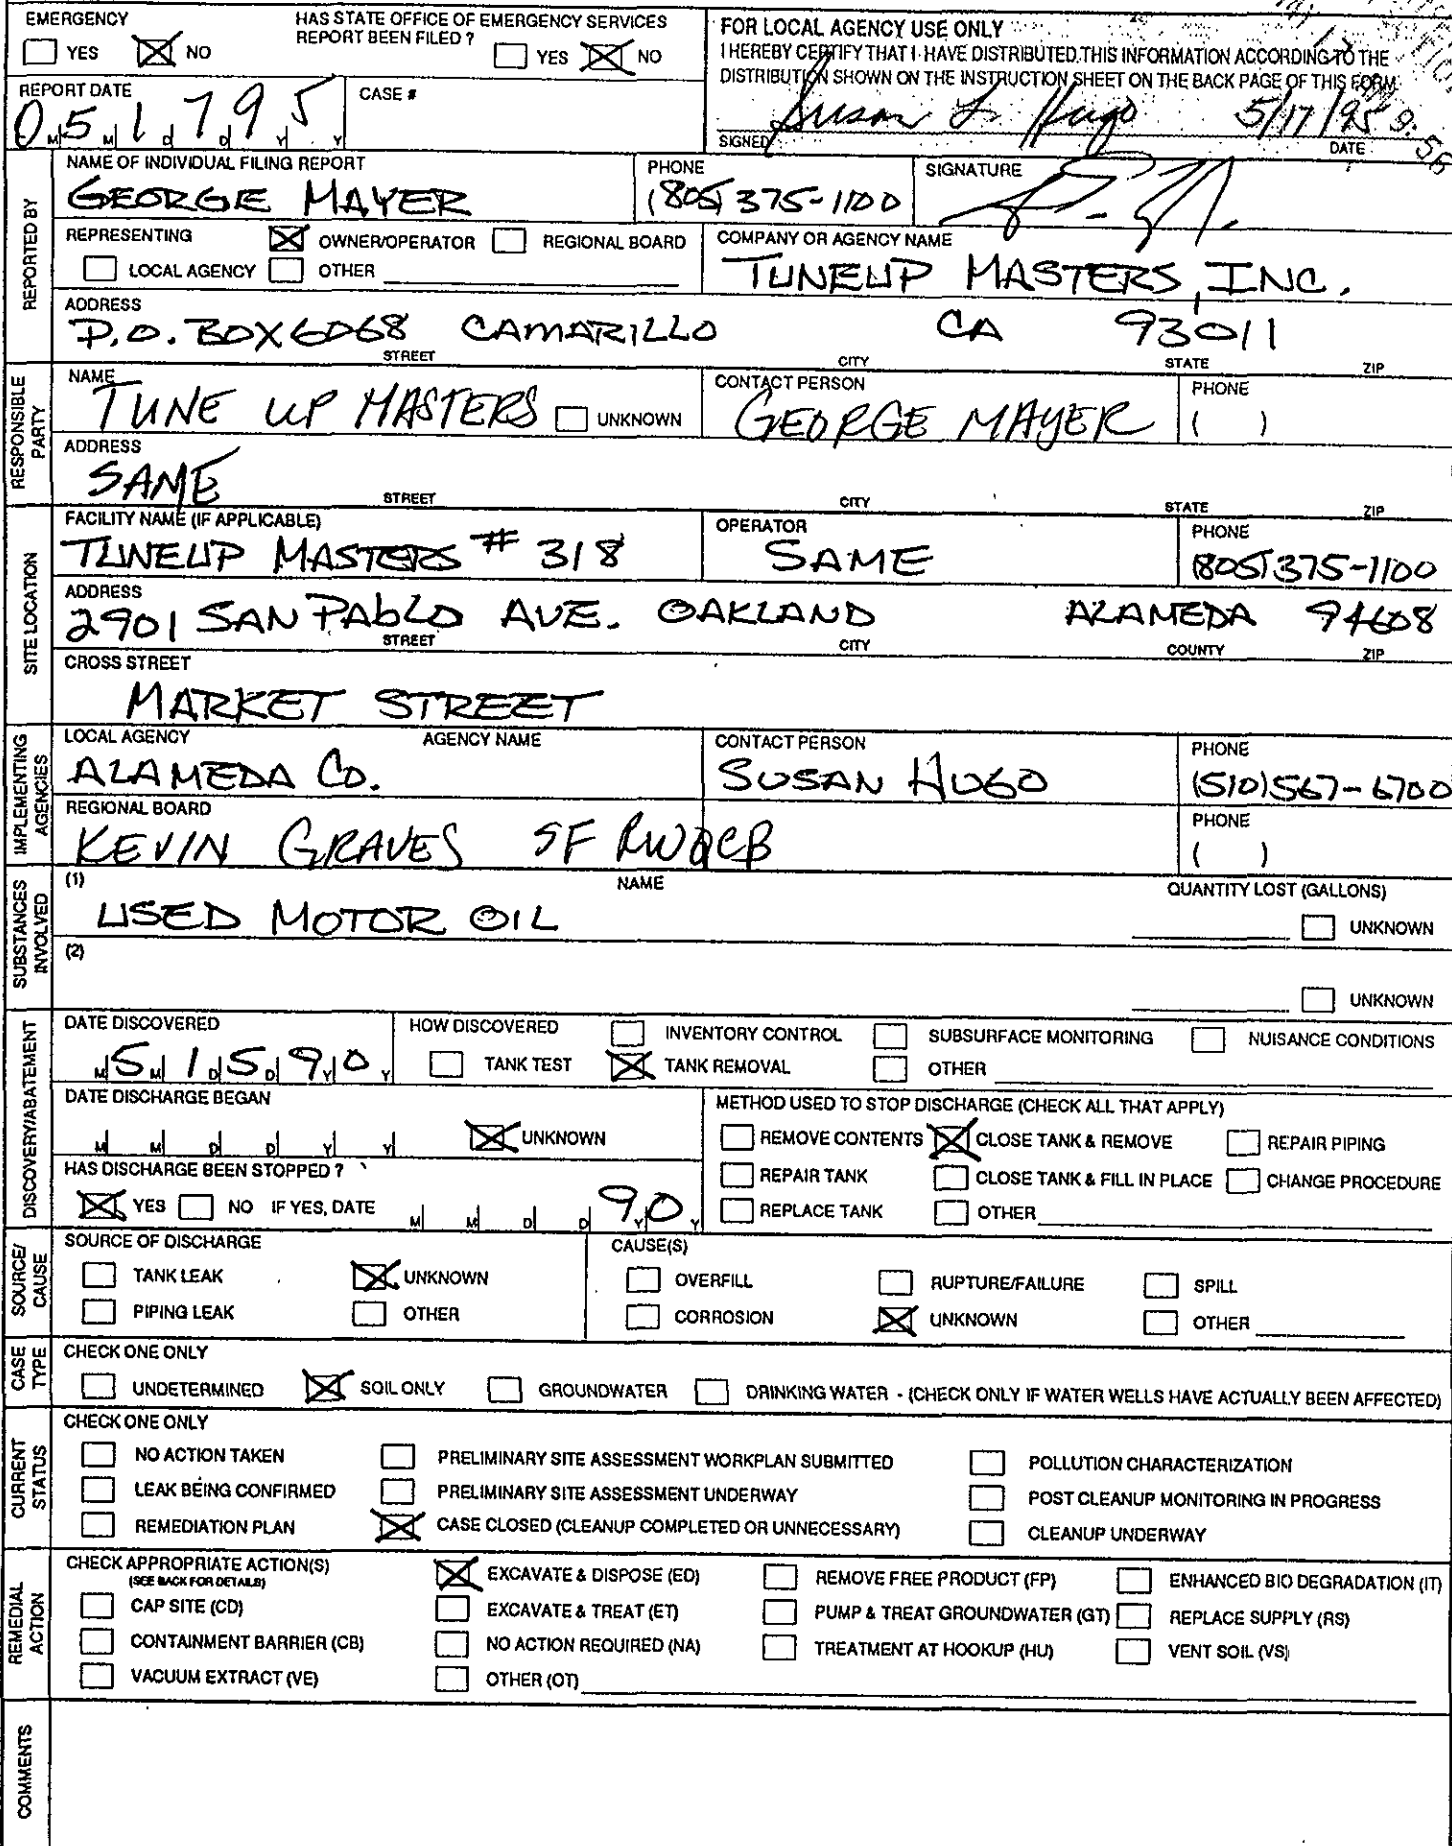 EMERGENCY
YES NO
HAS STATE OFFICE OF EMERGENCY SERVICES
REPORT BEEN FILED ?
YES NO
FOR LOCAL AGENCY USE ONLY
I HEREBY CERTIFY THAT I HAVE DISTRIBUTED THIS INFORMATION ACCORDING TO THE
DISTRIBUTION SHOWN ON THE INSTRUCTION SHEET ON THE BACK PAGE OF THIS FORM
REPORT DATE
051795
M M D D Y Y
CASE #
Susan L. Hugo 5/17/95
SIGNED DATE
REPORTED BY
NAME OF INDIVIDUAL FILING REPORT
GEORGE MAYER
PHONE
(805) 375-1100
SIGNATURE
REPRESENTING OWNER/OPERATOR REGIONAL BOARD
LOCAL AGENCY OTHER
COMPANY OR AGENCY NAME
TUNEUP MASTERS, INC.
ADDRESS
P.O. BOX 6068 CAMARILLO CA 93011
STREET CITY STATE ZIP
RESPONSIBLE
PARTY
NAME
TUNE UP MASTERS UNKNOWN
CONTACT PERSON
GEORGE MAYER
PHONE
( )
ADDRESS
SAME
STREET CITY STATE ZIP
SITE LOCATION
FACILITY NAME (IF APPLICABLE)
TUNEUP MASTERS # 318
OPERATOR
SAME
PHONE
(805) 375-1100
ADDRESS
2901 SAN PABLO AVE. OAKLAND ALAMEDA 94608
STREET CITY COUNTY ZIP
CROSS STREET
MARKET STREET
IMPLEMENTING
AGENCIES
LOCAL AGENCY AGENCY NAME
ALAMEDA CO.
CONTACT PERSON
SUSAN HUGO
PHONE
(510) 567-6700
REGIONAL BOARD
KEVIN GRAVES SF RWQCB
PHONE
( )
SUBSTANCES
INVOLVED
(1) NAME QUANTITY LOST (GALLONS)
USED MOTOR OIL UNKNOWN
(2)
UNKNOWN
DISCOVERY/ABATEMENT
DATE DISCOVERED
M 5 M 1 D 5 D 9 Y 0 Y
HOW DISCOVERED INVENTORY CONTROL SUBSURFACE MONITORING NUISANCE CONDITIONS
TANK TEST TANK REMOVAL OTHER
DATE DISCHARGE BEGAN
M M D D Y Y UNKNOWN
HAS DISCHARGE BEEN STOPPED ?
YES NO IF YES, DATE M M D D 9 Y 0 Y
METHOD USED TO STOP DISCHARGE (CHECK ALL THAT APPLY)
REMOVE CONTENTS CLOSE TANK & REMOVE REPAIR PIPING
REPAIR TANK CLOSE TANK & FILL IN PLACE CHANGE PROCEDURE
REPLACE TANK OTHER
SOURCE/
CAUSE
SOURCE OF DISCHARGE
TANK LEAK UNKNOWN
PIPING LEAK OTHER
CAUSE(S)
OVERFILL RUPTURE/FAILURE SPILL
CORROSION UNKNOWN OTHER
CASE
TYPE
CHECK ONE ONLY
UNDETERMINED SOIL ONLY GROUNDWATER DRINKING WATER - (CHECK ONLY IF WATER WELLS HAVE ACTUALLY BEEN AFFECTED)
CURRENT
STATUS
CHECK ONE ONLY
NO ACTION TAKEN PRELIMINARY SITE ASSESSMENT WORKPLAN SUBMITTED POLLUTION CHARACTERIZATION
LEAK BEING CONFIRMED PRELIMINARY SITE ASSESSMENT UNDERWAY POST CLEANUP MONITORING IN PROGRESS
REMEDIATION PLAN CASE CLOSED (CLEANUP COMPLETED OR UNNECESSARY) CLEANUP UNDERWAY
REMEDIAL
ACTION
CHECK APPROPRIATE ACTION(S)
(SEE BACK FOR DETAILS)
EXCAVATE & DISPOSE (ED) REMOVE FREE PRODUCT (FP) ENHANCED BIO DEGRADATION (IT)
CAP SITE (CD) EXCAVATE & TREAT (ET) PUMP & TREAT GROUNDWATER (GT) REPLACE SUPPLY (RS)
CONTAINMENT BARRIER (CB) NO ACTION REQUIRED (NA) TREATMENT AT HOOKUP (HU) VENT SOIL (VS)
VACUUM EXTRACT (VE) OTHER (OT)
COMMENTS